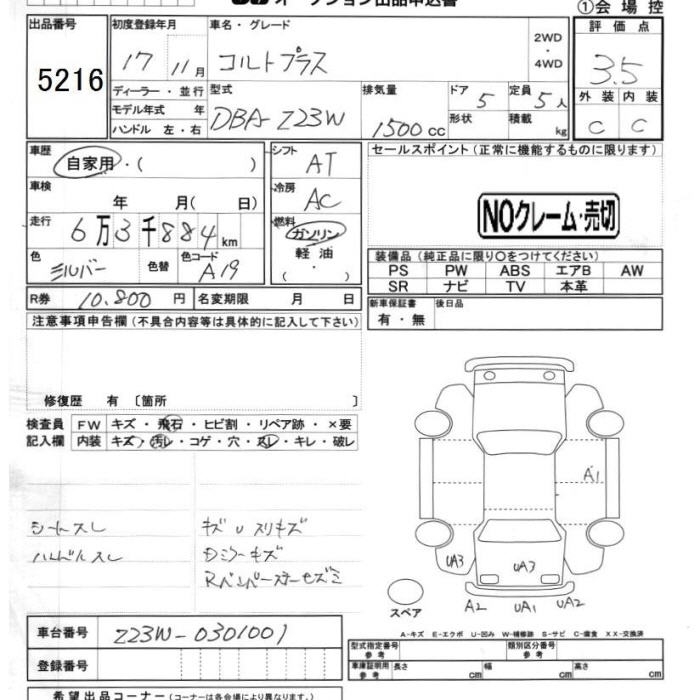 オークション出品申込書
①会場控
出品番号
5216
初度登録年月
17 11月
車名・グレード
コルトプラス
2WD
・
4WD
評価点
3.5
ディーラー・並行
モデル年式 年
ハンドル 左・右
型式
DBA-Z23W
排気量
1500cc
ドア 5
形状
定員 5人
積載 kg
外装 内装
C C
車歴
自家用・( )
シフト AT
車検
年 月( 日)
冷房 AC
走行
6万3千884km
燃料
ガソリン
軽油
( ・ )
色
シルバー
色替
色コード
A19
R券 10.800円
名変期限 月 日
セールスポイント(正常に機能するものに限ります)
NOクレーム・売切
装備品(純正品に限り○をつけてください)
PS PW ABS エアB AW
SR ナビ TV 本革
新車保証書
有・無
後日品
注意事項申告欄(不具合内容等は具体的に記入して下さい)
修復歴 有 〔箇所 〕
検査員
記入欄
FW キズ・飛石・ヒビ割・リペア跡・×要
内装 キズ・汚レ・コゲ・穴・スレ・キレ・破レ
シートスレ
ハンドルスレ
キズUスリキズ
Dミラーキズ
A1
UA3
UA3
A2 UA1 UA2
スペア
A-キズ E-エクボ U-凹み W-補修跡 S-サビ C-腐食 XX-交換済
車台番号
Z23W-0301001
登録番号
型式指定番号
参考
類別区分番号
参考
車庫証明用
参考
長さ cm 幅 cm 高さ cm
希望出品コーナー(コーナーは各会場により異なります。)